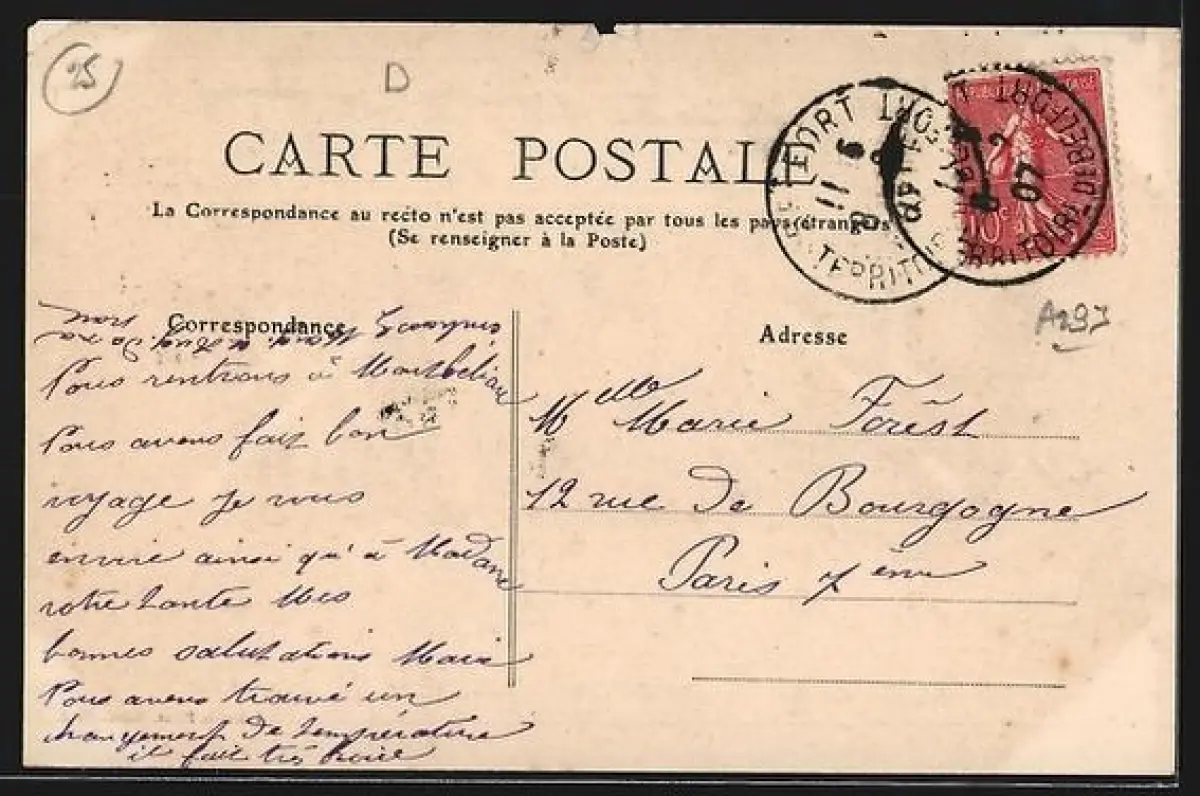 25
D
CARTE POSTALE
La Correspondance au recto n'est pas acceptée par tous les pays étrangers
(Se renseigner à la Poste)
BELFORT 11 6 TERRITRE
BELFORT 2 07 TERRITOIRE DE BELFORT
10c
A197
Correspondance
Adresse
Nous rentrons à Montbeliard
Nous avons fait bon
voyage je vous
envoie ainsi qu'à Madame
votre tante Mes
bonnes salutations
Nous avons trouvé un
changement de température
il fait très
Melle Marie Forest
12 rue de Bourgogne
Paris 7ème